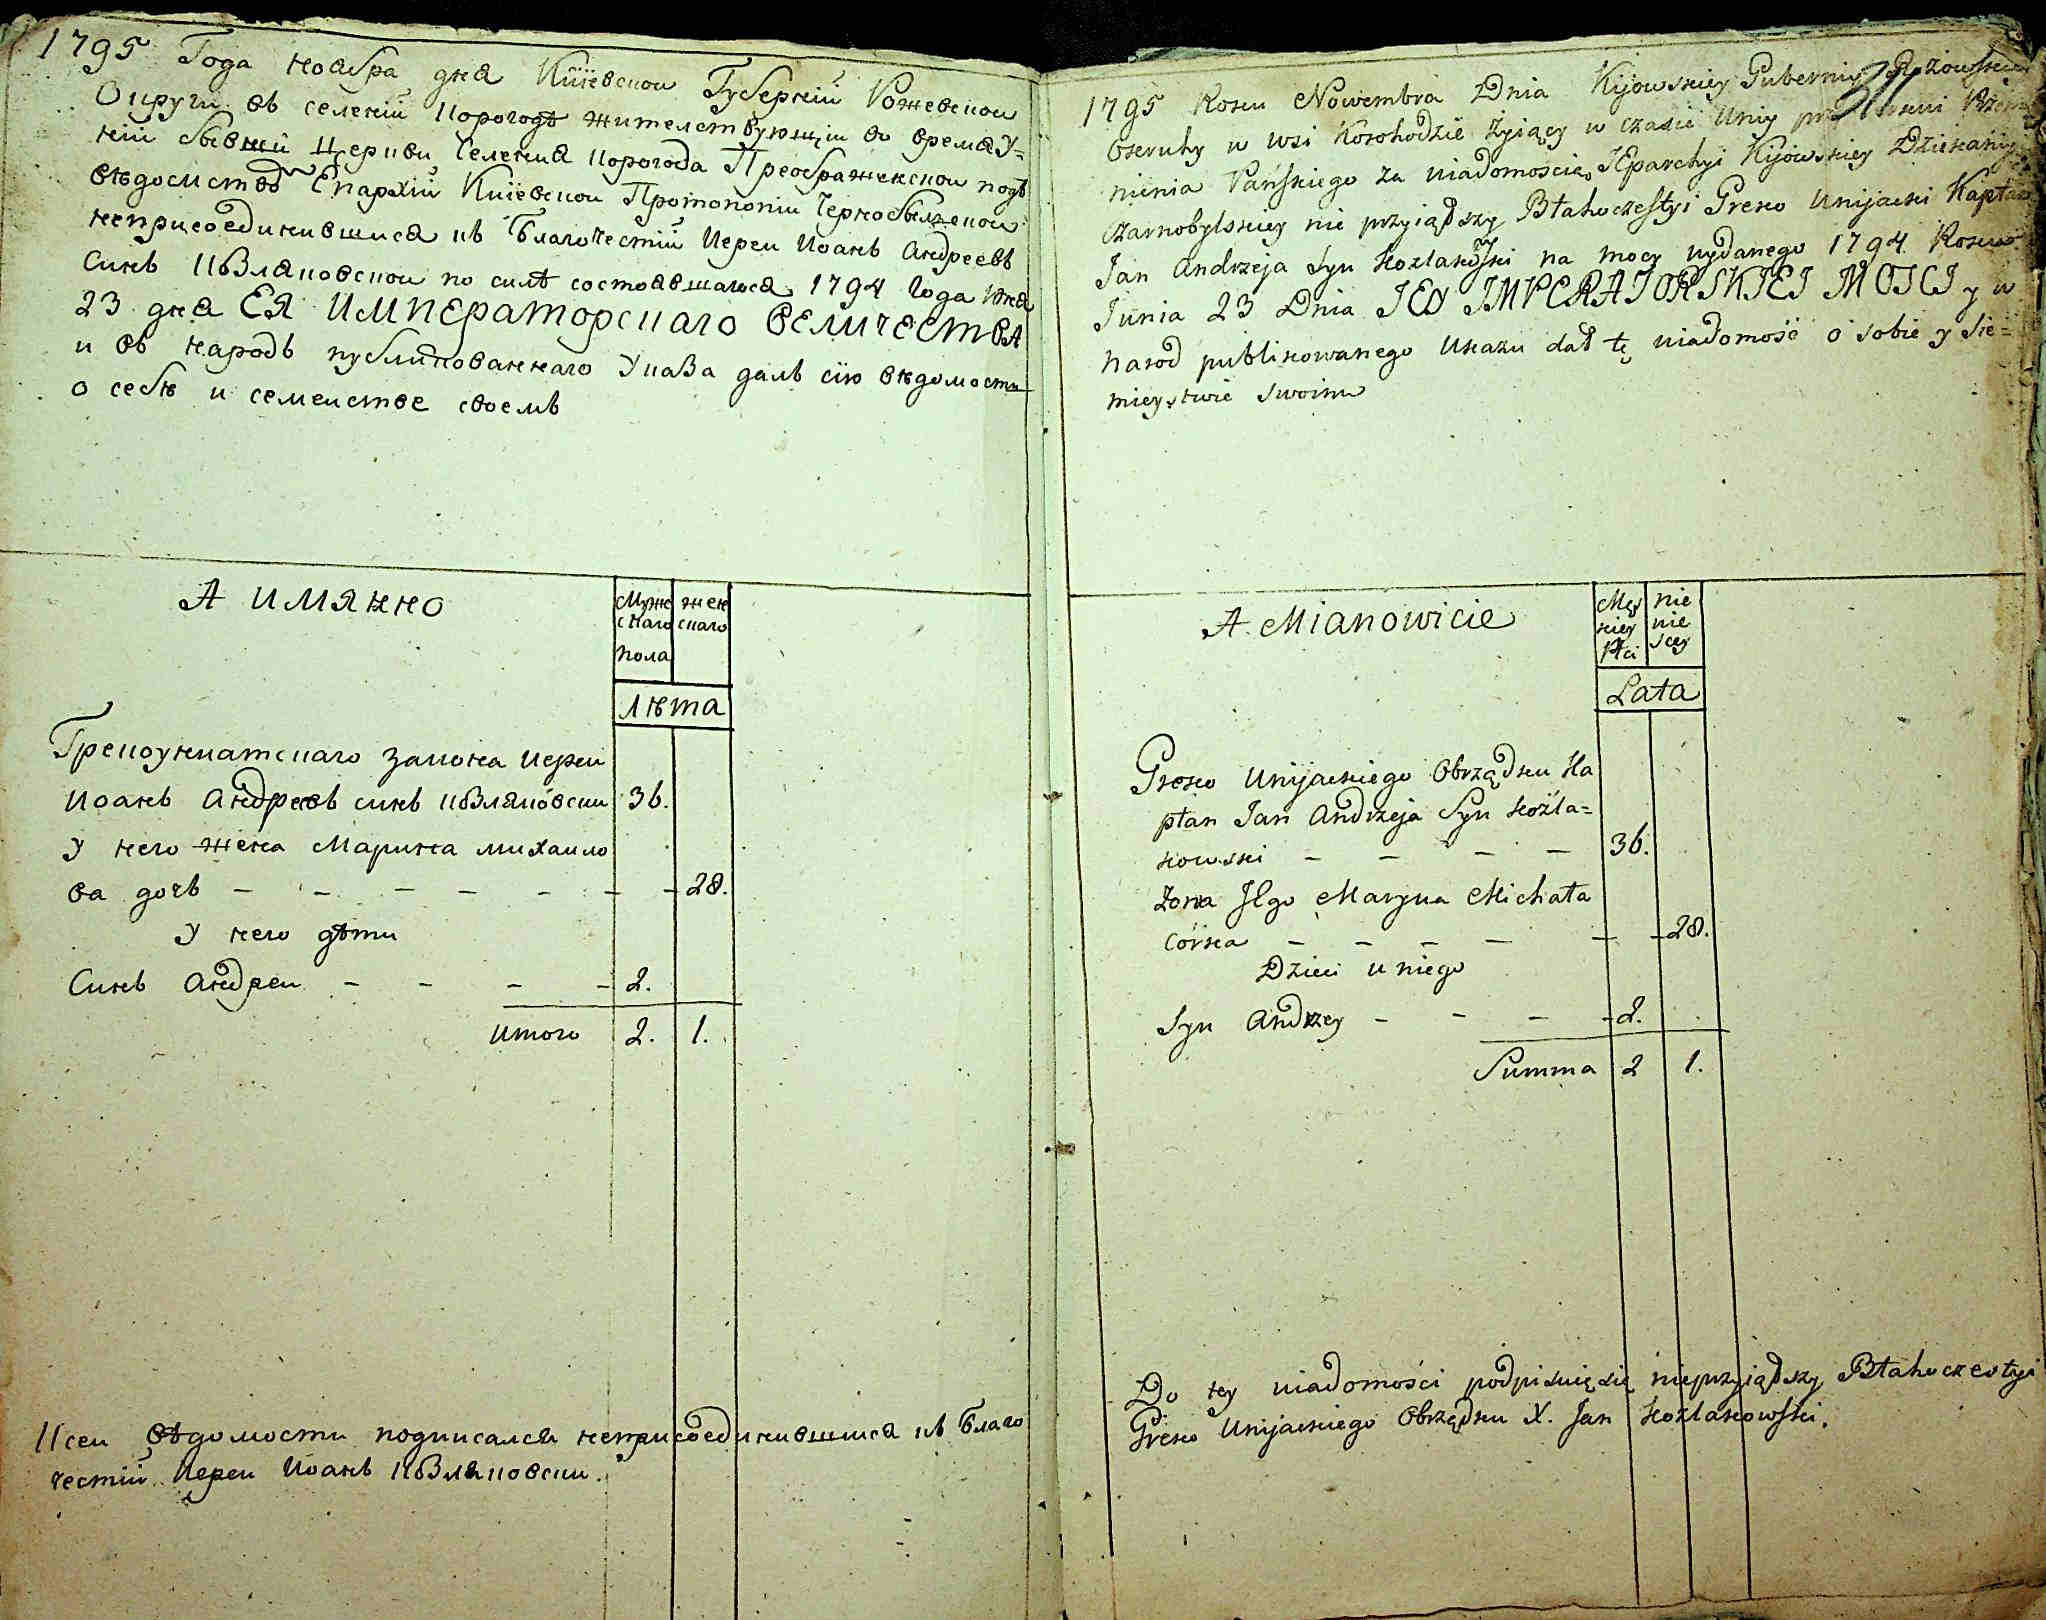 1795 Года ноября дня Кіїевской Губерніи Рожевской
Округи въ селеніи Корогодѣ жителствующіи во время У=
ніи бывшіи Церкви Селенія Корогода Преображенской подъ
вѣдомством Епархіи Кіїевской Протопопіи Чернобылской
неприсоединившися къ Благочестію Иереи Иоанъ Андреевъ
Синъ Козляковской по силѣ состоявшагося 1794 Года июня
23 дня ЕЯ ИМПЕРАТОРСКАГО ВЕЛИЧЕСТВА
и въ народъ публикованнаго Указа далъ сію вѣдомость
о себѣ и семействе своемъ
А имянно
Муже
скаго
пола
жен
скаго
лѣта
Грекоуниатскаго закона иереи
Иоанъ Андреевъ синъ Козляковски 36.
У него жена Марина михаило
ва дочъ – – – – – – – 28.
У него дѣти
Синъ Андреи – – – – 2.
итого 2. 1.
К сеи вѣдомости подписался неприсоединившися къ Благо
честію Иереи Иоанъ Козляковски.
1795 Roku Nowembra Dnia Kijowskiey Gubernii Rożowskiey
Okruhy w wsi Korohodzie żyiący w czasie Uniy przy
nienia Pańskiego za wiadomością Eparchyi Kijowskiey Dziekaniy
Czarnobylskiey nie przyiąwszy Błahoczestyi Greko Unijacki Kapłan
Jan Andrzeja Syn Kozlakowski na mocy wydanego 1794 Roku
Junia 23 Dnia JEY IMPERATORSKIEJ MOSCI y w
narod publikowanego Ukazu dał tę wiadomość o sobie y Sie=
mieystwie swoim
A Mianowicie
Męs
kiey
Płci
nie
wie
scey
Lata
Greko Unijackiego Obrządku Ka
płan Jan Andrzeja Syn Kozla=
kowski – – – – 36.
Żona Jego Maryna Michała
Córka – – – – – – 28.
Dzieci u niego
Syn Andrzey – – – – 2.
Summa 2 1.
Do tey wiadomości podpisuię się nieprzyiąwszy Błahoczestyi
Greko Unijackiego Obrządku X. Jan Kozlakowski.